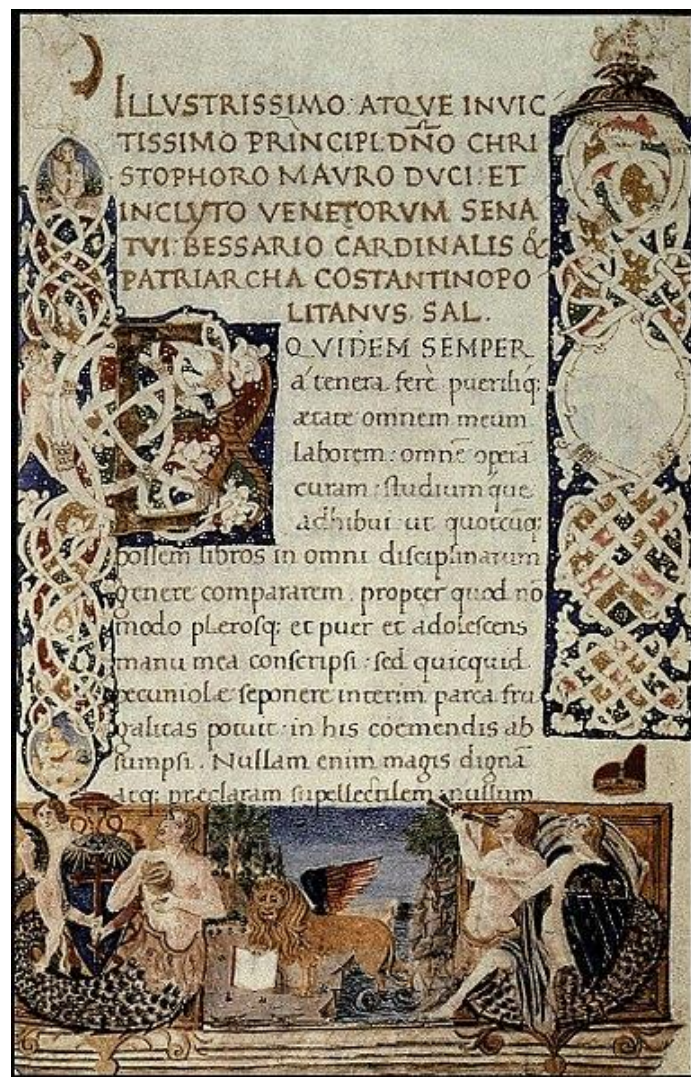 ILLVSTRISSIMO ATQVE INVIC
TISSIMO PRINCIPI DÑO CHRI
STOPHORO MAVRO DVCI: ET
INCLYTO VENETORVM SENA
TVI: BESSARIO CARDINALIS &
PATRIARCHA COSTANTINOPO
LITANVS. SAL.
EQVIDEM SEMPER
a tenera ferè pueriliq;
ætate omnem meum
laborem: omnē operā
curam: studiumque
adhibui ut quotcūq;
possem libros in omni disciplinarum
genere compararem. propter quod nō
modo plerosq; et puer et adolescens
manu mea conscripsi: sed quicquid
pecuniolæ seponere interim parca fru
galitas potuit: in his coemendis ab
sumpsi. Nullam enim magis dignā
atq; præclaram supellectilem: nullum